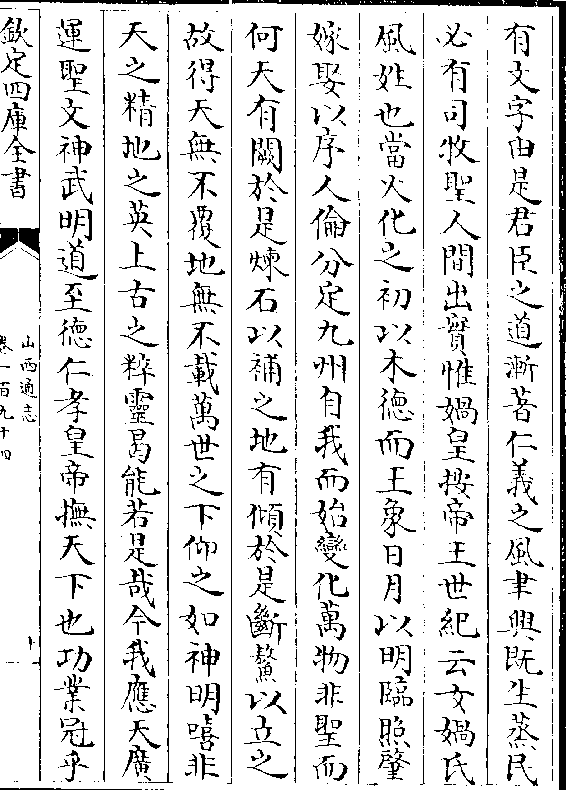 有文字由是君臣之道漸著仁義之風聿興既生蒸民
必有司牧聖人間出實惟媧皇按帝王世紀云女媧氏
風姓也當火化之初以木德而王象日月以明臨照肇
嫁娶以序人倫分定九州自我而始變化萬物非聖而
何天有闕於是煉石以補之地有傾於是斷鼇以立之
故得天無不覆地無不載萬世之下仰之如神明嘻非
天之精地之英上古之粹靈曷能若是哉今我應天廣
運聖文神武明道至德仁孝皇帝撫天下也功業冠乎
欽定四庫全書
山西通志
卷一百九十四